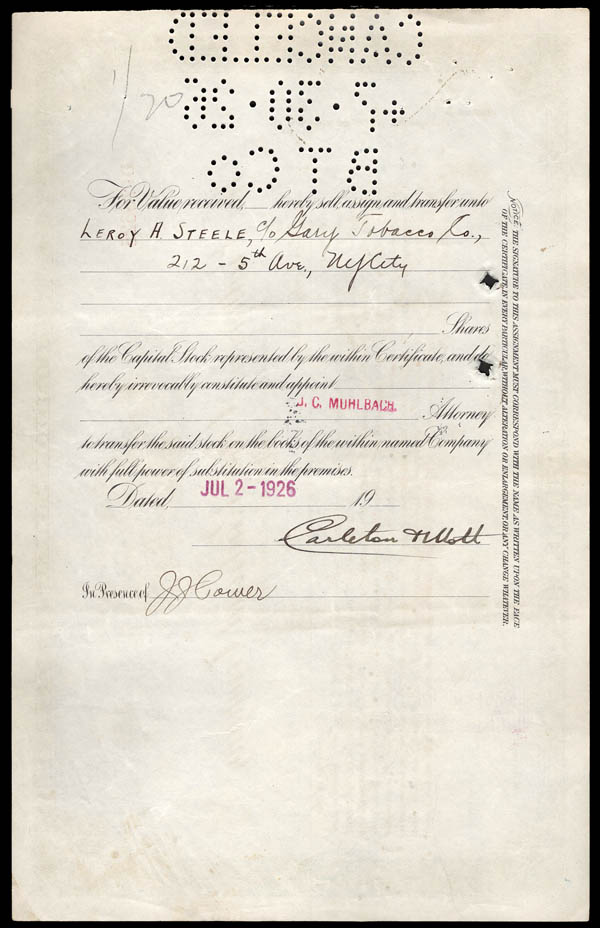 CANCELLED
7·30·26
B T CO
For Value received, hereby sell, assign and transfer unto
LEROY A. STEELE, c/o Gary Tobacco Co.,
212 - 5th Ave., NYCity
Shares
of the Capital Stock represented by the within Certificate, and do
hereby irrevocably constitute and appoint
J. C. MUHLBACH. Attorney
to transfer the said stock on the books of the within named Company
with full power of substitution in the premises.
Dated, JUL 2-1926 19
Carleton Mott
In Presence of J J Cower
NOTICE. THE SIGNATURE TO THIS ASSIGNMENT MUST CORRESPOND WITH THE NAME AS WRITTEN UPON THE FACE
OF THE CERTIFICATE, IN EVERY PARTICULAR, WITHOUT ALTERATION OR ENLARGEMENT, OR ANY CHANGE WHATEVER.